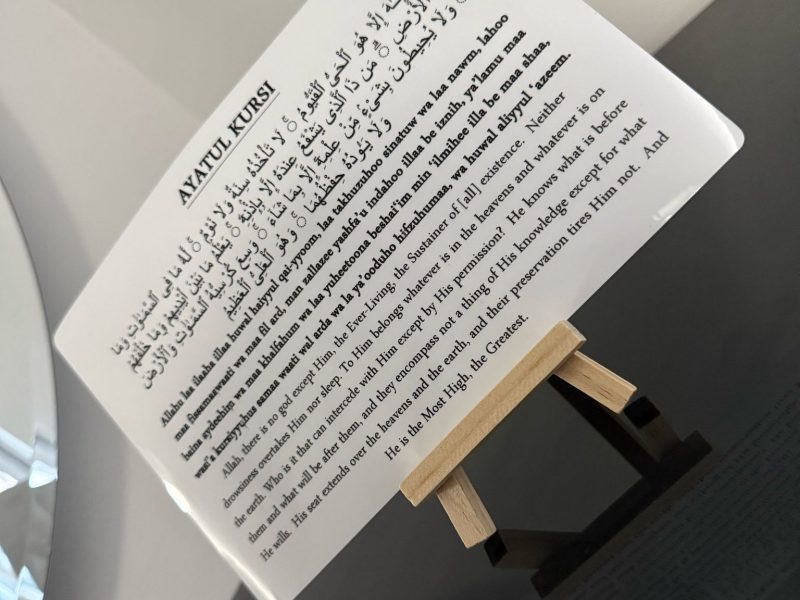 AYATUL KURSI
إِلَّا هُوَ ٱلْحَىُّ ٱلْقَيُّومُ ۚ لَا تَأْخُذُهُۥ سِنَةٌ وَلَا نَوْمٌ ۚ لَّهُۥ مَا فِى ٱلسَّمَـٰوَٰتِ وَمَا
ٱلْأَرْضِ ۗ مَن ذَا ٱلَّذِى يَشْفَعُ عِندَهُۥٓ إِلَّا بِإِذْنِهِۦ ۚ يَعْلَمُ مَا بَيْنَ أَيْدِيهِمْ وَمَا خَلْفَهُمْ
وَلَا يُحِيطُونَ بِشَىْءٍ مِّنْ عِلْمِهِۦٓ إِلَّا بِمَا شَآءَ ۚ وَسِعَ كُرْسِيُّهُ ٱلسَّمَـٰوَٰتِ وَٱلْأَرْضَ
وَلَا يَـُٔودُهُۥ حِفْظُهُمَا ۚ وَهُوَ ٱلْعَلِىُّ ٱلْعَظِيمُ
Allahu laa ilaaha illaa huwal haiyyul qai-yyoom, laa takhuzuhoo sinatuw wa laa nawm, lahoo
maa fissamaawaati wa maa fil ard, man zallazee yashfa'u indahoo illaa be iznih, ya'lamu maa
baina aydeehim wa maa khalfahum wa laa yuheetoona beshai'im min 'ilmihee illa be maa shaa,
wasi'a kursiyyuhus samaa waati wal arda wa la ya'ooduho hifzuhumaa, wa huwal aliyyul 'azeem.
Allah, there is no god except Him, the Ever-Living, the Sustainer of [all] existence. Neither
drowsiness overtakes Him nor sleep. To Him belongs whatever is in the heavens and whatever is on
the earth. Who is it that can intercede with Him except by His permission? He knows what is before
them and what will be after them, and they encompass not a thing of His knowledge except for what
He wills. His seat extends over the heavens and the earth, and their preservation tires Him not. And
He is the Most High, the Greatest.